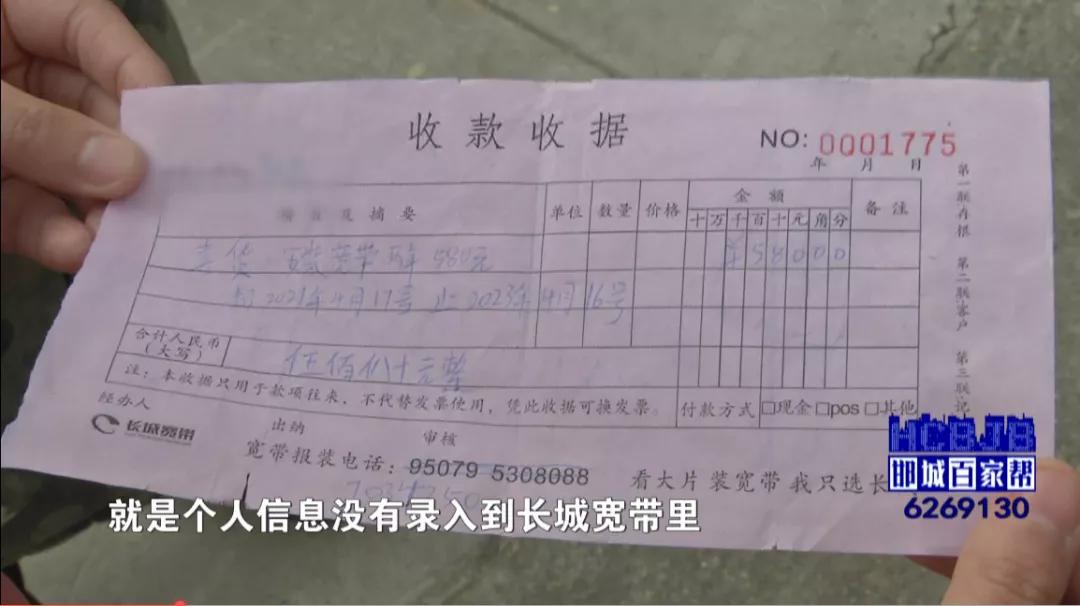 收款收据
NO: 0001775
年 月 日
摘要 单位 数量 价格 金额 备注
十万千百十元角分
宽带 580元 ¥58000
2021年4月17号 止 2023年4月16号
合计人民币
(大写)
伍佰八十元整
注:本收据只用于款项往来,不代替发票使用,凭此收据可换发票。
付款方式 □现金 □pos □其他
经办人 出纳 审核
长城宽带
宽带报装电话:95079 5308088
看大片 装宽带 我只选长
第一联存根 第二联客户 第三联记
HCBJB
邯城百家帮
6269130
就是个人信息没有录入到长城宽带里